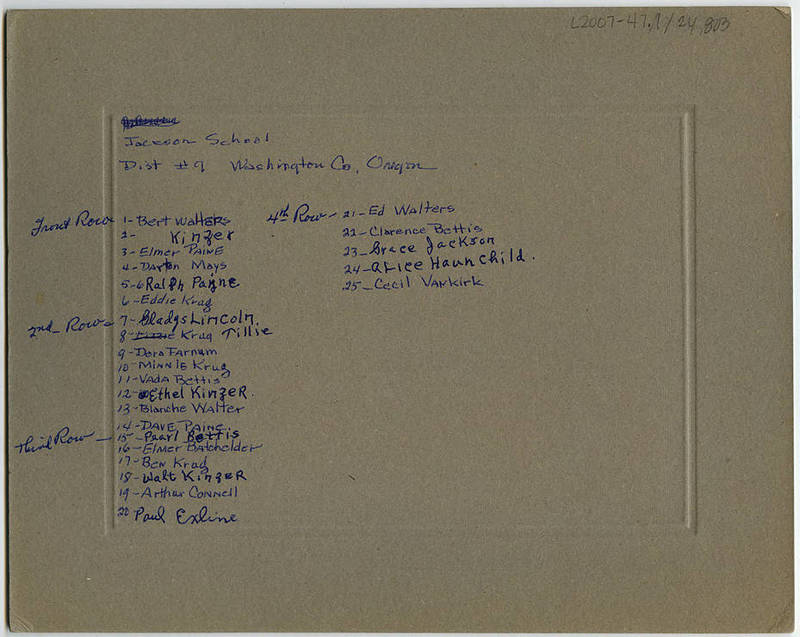 L2007-47.1/24,803
Jackson School
Dist #9 Washington Co, Oregon
Front Row 1- Bert Walters
2- Kinzer
3- Elmer Paine
4- Darton Mays
5- Ralph Paine
6- Eddie Krug
2nd Row 7- Gladys Lincoln.
8- Krug Tillie
9- Dora Farnum
10- Minnie Krug
11- Vada Bettis
12- Ethel Kinzer.
13- Blanche Walter
14- Dave Paine
Third Row - 15- Pearl Bettis
16- Elmer Batchelder
17- Ben Krug
18- Walt Kinzer
19- Arthur Connell
20 Paul Exline
4th Row - 21- Ed Walters
22- Clarence Bettis
23- Grace Jackson
24- Alice Haunchild.
25- Cecil Vankirk